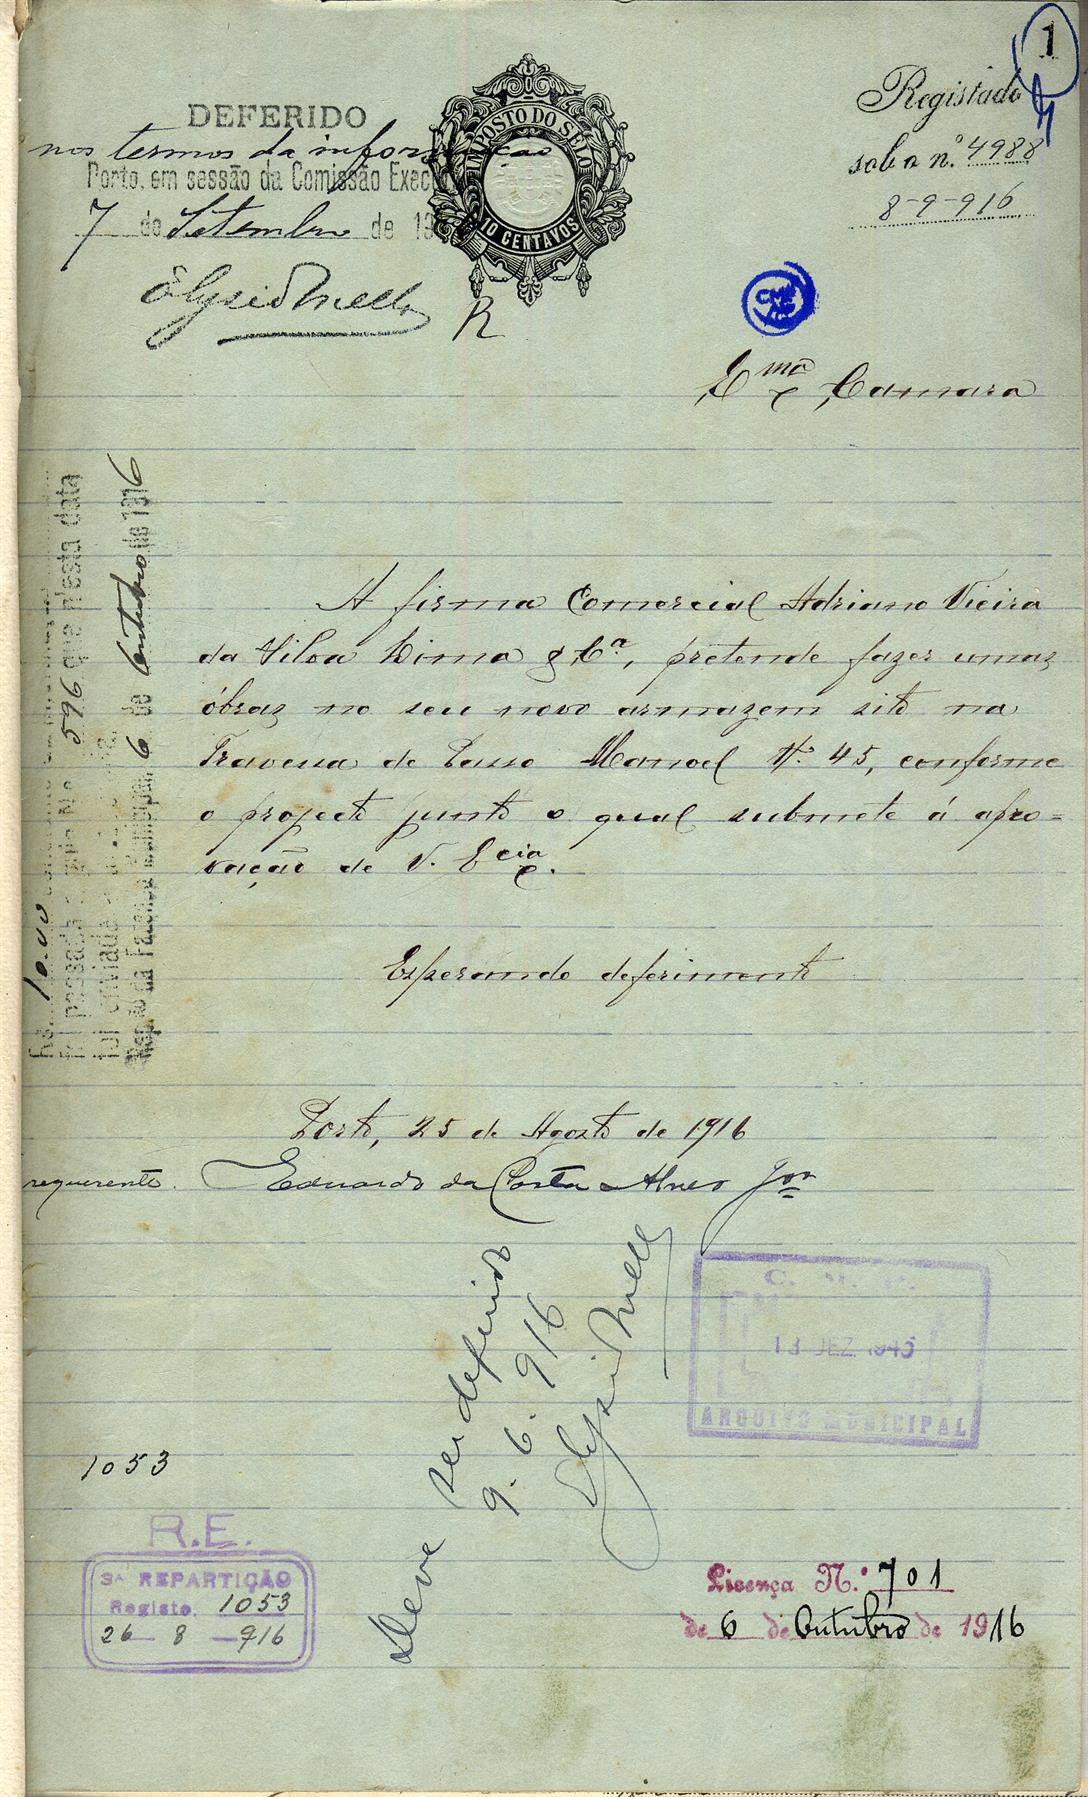 1
Registado
sob o n.º 4988
8-9-916
DEFERIDO
nos termos da informação
Porto, em sessão da Comissão
7 de Setembro de 19
Elysio Mello
IMPOSTO DO SELO
10 CENTAVOS
R
Exma Camara
A firma Comercial Adriano Vieira
da Silva Lima & Cª, pretende fazer umas
óbras no seu novo armazem sito na
Travessa de Passo Manoel Nº 45, conforme
o projecto junto o qual submete á apro=
vação de V. Excia.
Esperando deferimento
Porto, 25 de Agosto de 1916
requerente. Eduardo da Costa Alves Jor
10.00
foi passada a guia Nº 596 que n'esta data
foi enviada
Repº da Fazenda Municipal, 6 de Outubro de 1916
Deve ser deferido
9. 6. 916
Elysio Mello
C. M. P.
13 DEZ. 1945
ARQUIVO MUNICIPAL
1053
R.E.
3ª REPARTIÇÃO
Registo 1053
26 8 916
Licença N.º 701
de 6 de Outubro de 1916